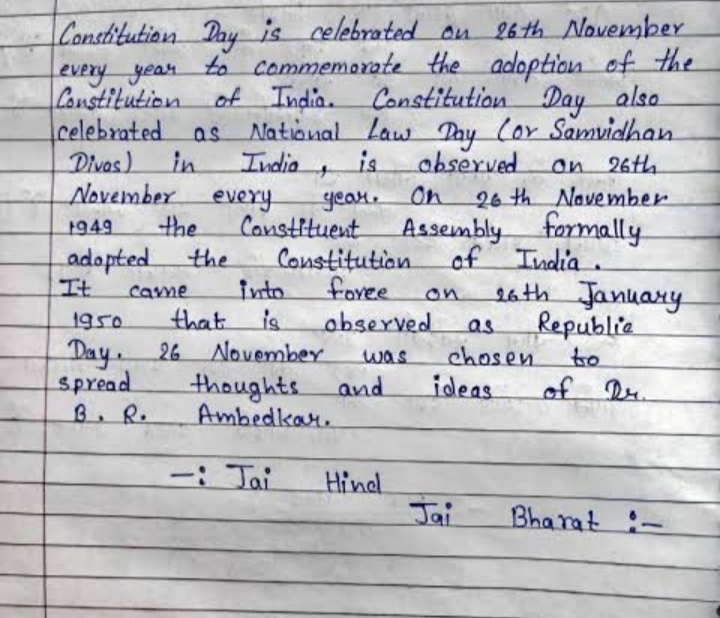 Constitution Day is celebrated on 26th November
every year to commemorate the adoption of the
Constitution of India. Constitution Day also
celebrated as National Law Day (or Samvidhan
Divas) in India, is observed on 26th
November every year. On 26th November
1949 the Constituent Assembly formally
adopted the Constitution of India.
It came into force on 26th January
1950 that is observed as Republic
Day. 26 November was chosen to
spread thoughts and ideas of Dr.
B. R. Ambedkar.
-: Jai Hind
Jai Bharat :-